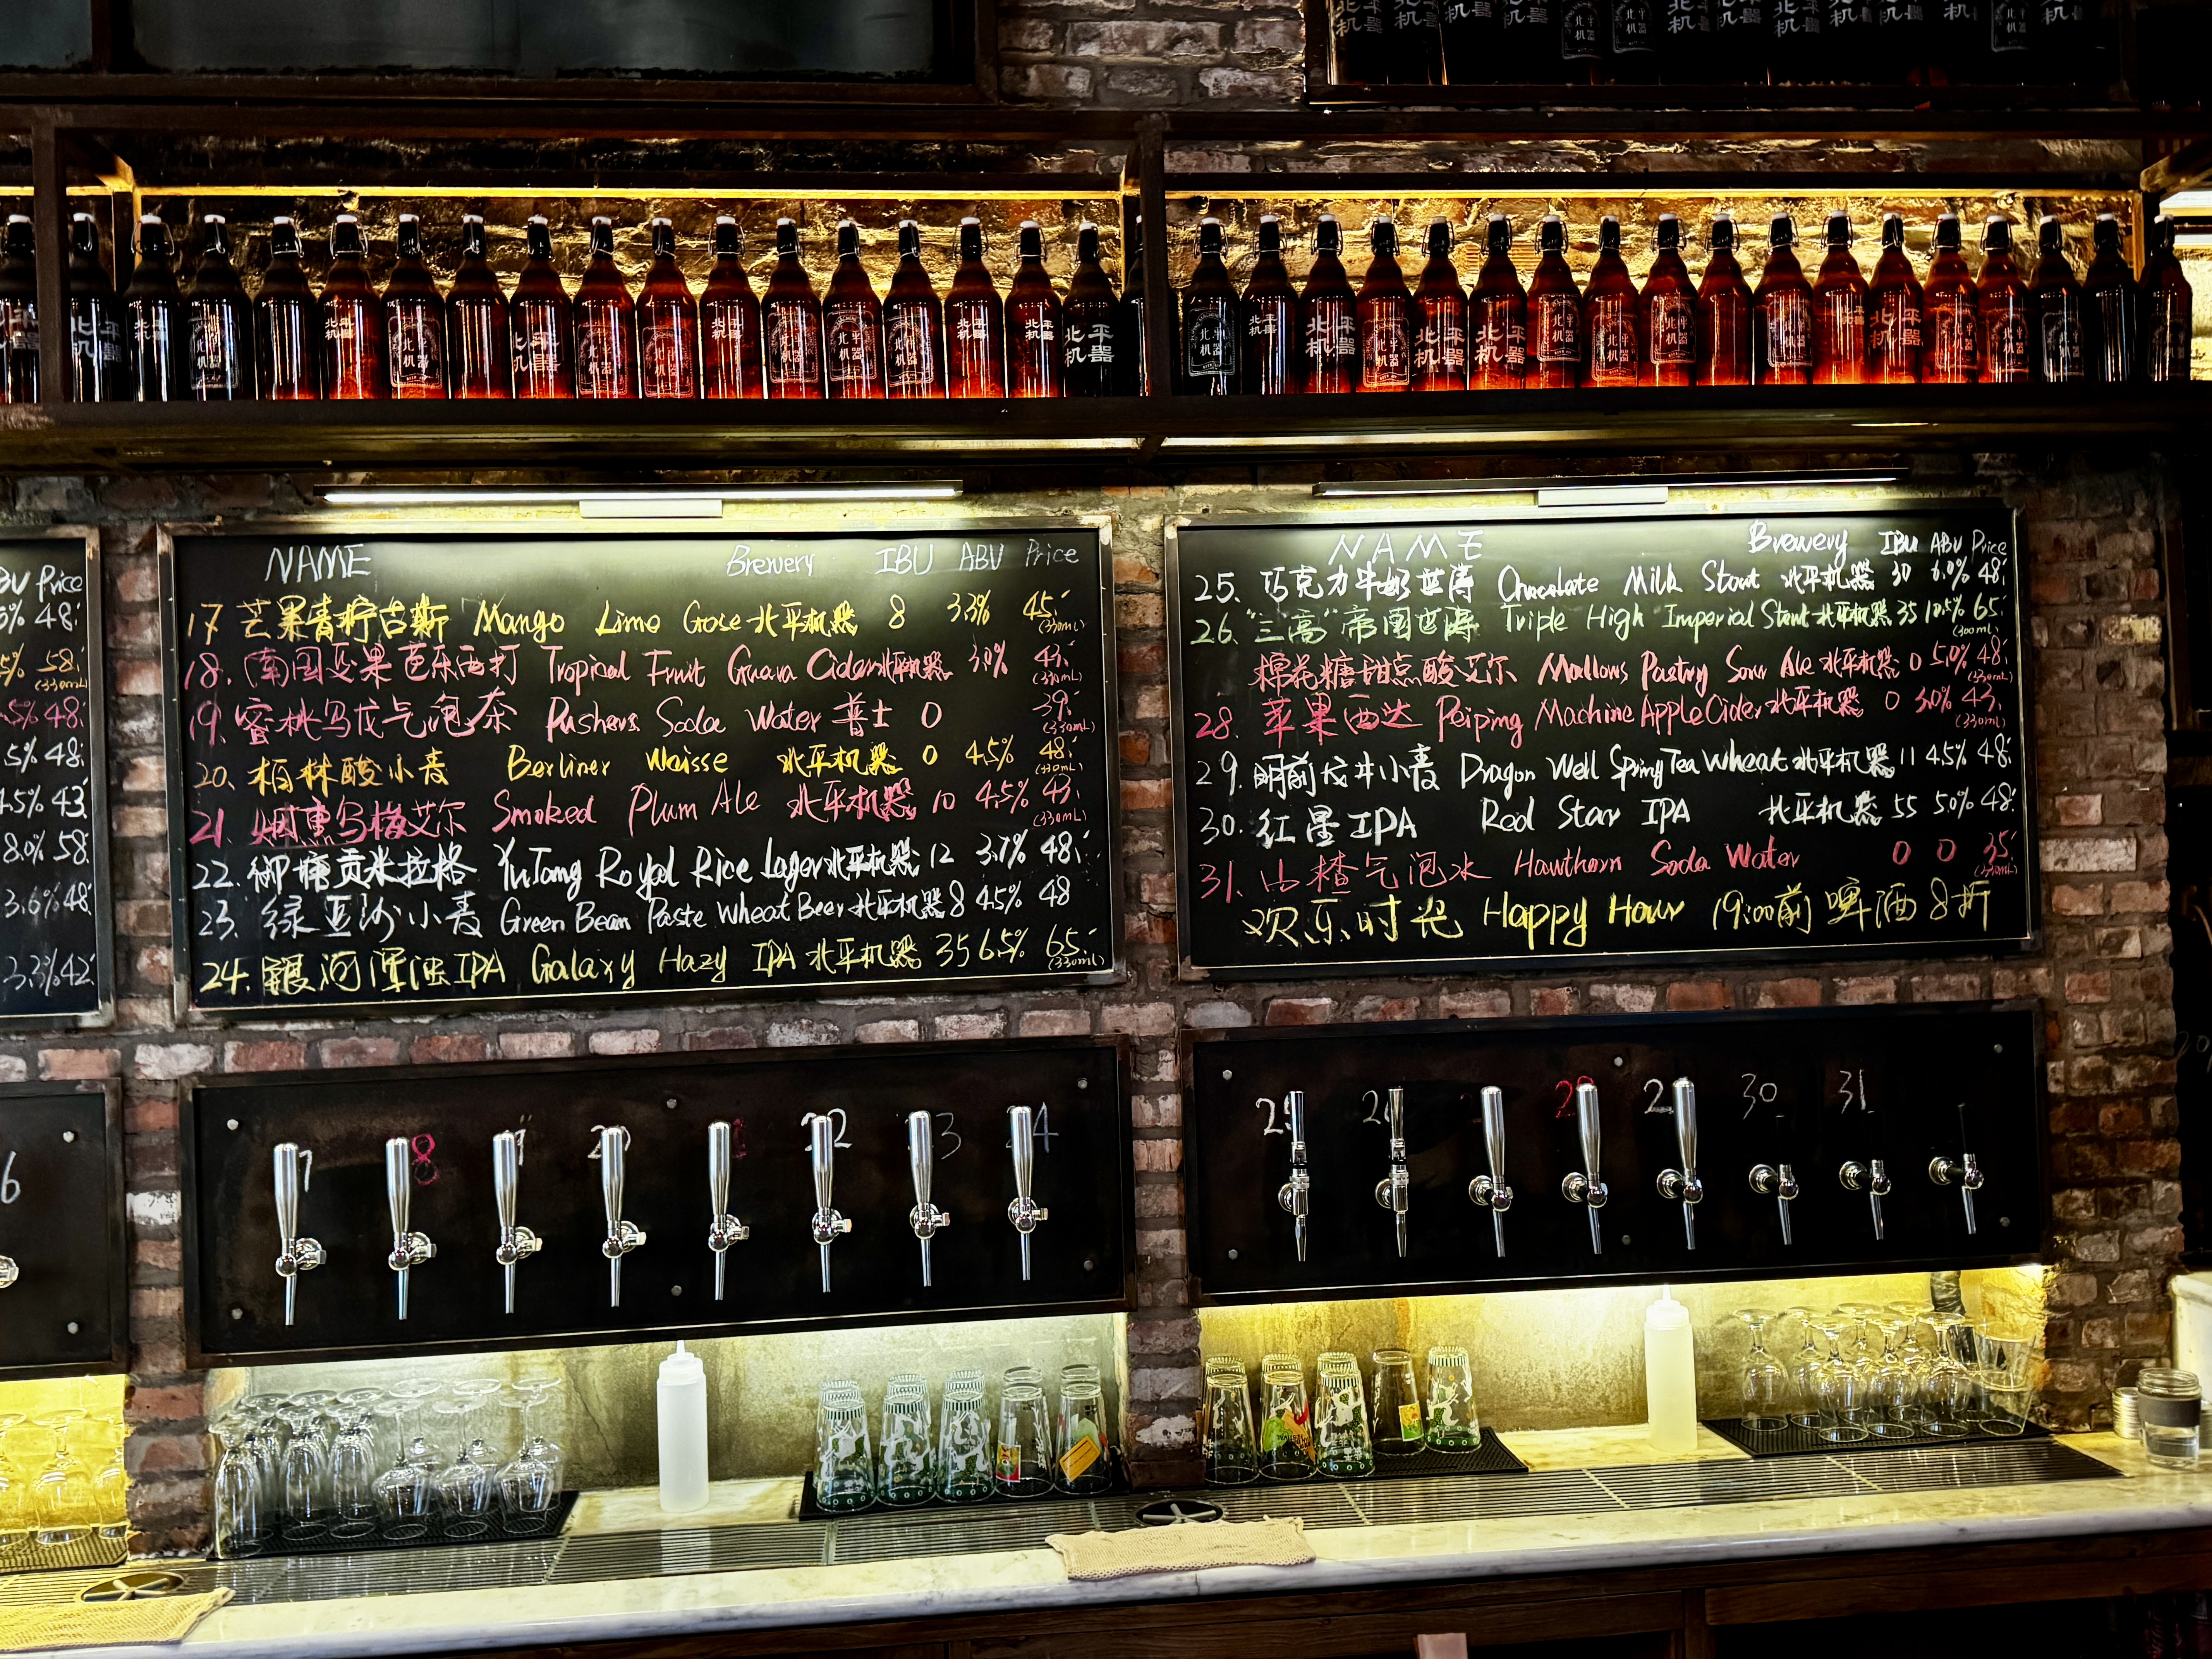 北平机器
BU Price
5% 48.
5% 58.
(330mL)
.5% 48.
5% 48.
4.5% 43.
8.0% 58.
3.6% 48.
3.3% 42.
NAME Brewery IBU ABV Price
17 芒果青柠古斯 Mango Lime Gose 北平机器 8 3.3% 45.
(330mL)
18. 南国及果芭乐西打 Tropical Fruit Guava Cider 北平机器 3.0% 43.
(330mL)
19. 蜜桃乌龙气泡茶 Pushers Soda Water 普士 0 39.
(330mL)
20. 柏林酸小麦 Berliner Waisse 北平机器 0 4.5% 48.
(330mL)
21. 烟熏乌梅艾尔 Smoked Plum Ale 北平机器 10 4.5% 43.
(330mL)
22. 御塘贡米拉格 YuTang Royal Rice Lager 北平机器 12 3.7% 48.
23. 绿豆沙小麦 Green Bean Paste Wheat Beer 北平机器 8 4.5% 48
24. 银河浑浊IPA Galaxy Hazy IPA 北平机器 35 6.5% 65.
(330mL)
NAME Brewery IBU ABV Price
25. 巧克力牛奶世涛 Chocolate Milk Stout 北平机器 30 6.0% 48.
26. "三高"帝国世涛 Triple High Imperial Stout 北平机器 35 10.5% 65.
(300mL)
棉花糖甜点酸艾尔 Mallows Pastry Sour Ale 北平机器 0 5.0% 48.
(330mL)
28. 苹果西达 Peiping Machine Apple Cider 北平机器 0 3.0% 43.
(330mL)
29. 明前龙井小麦 Dragon Well Spring Tea Wheat 北平机器 11 4.5% 48.
30. 红星IPA Red Star IPA 北平机器 55 5.0% 48.
31. 山楂气泡水 Hawthorn Soda Water 0 0 35.
(330mL)
欢乐时光 Happy Hour 19:00前 啤酒8折
6 7 8 20 22 3 4
25 26 28 2 30 31